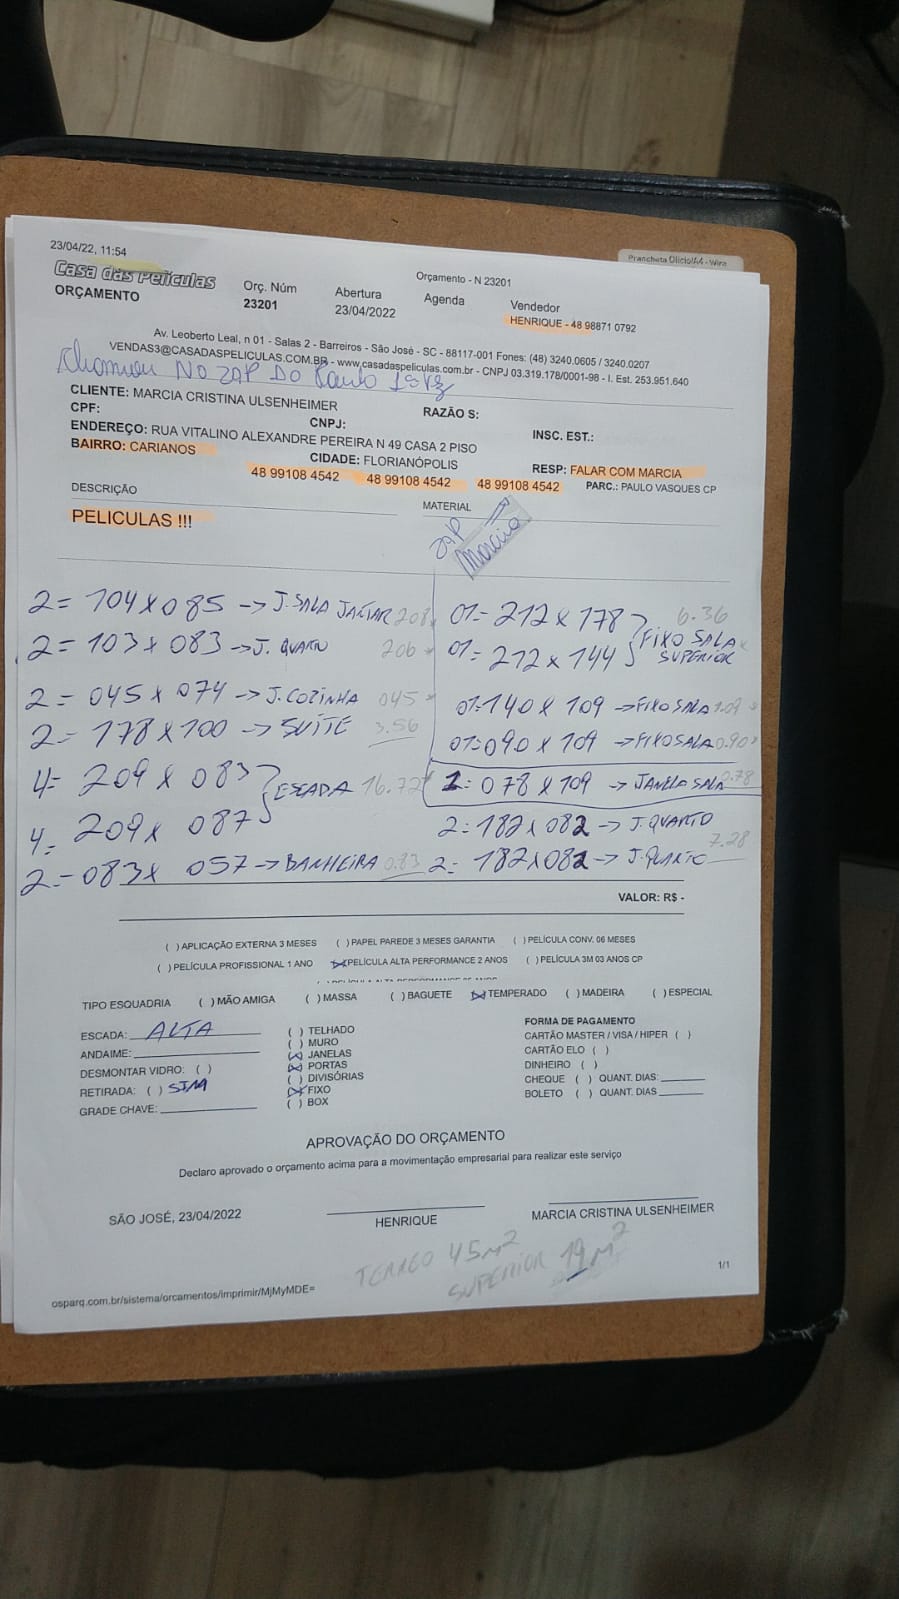 Prancheta Ofício/A4 - Wira
23/04/22, 11:54
Orçamento - N 23201
Casa das Películas
ORÇAMENTO
Orç. Núm
23201
Abertura
23/04/2022
Agenda
Vendedor
HENRIQUE - 48 98871 0792
Av. Leoberto Leal, n 01 - Salas 2 - Barreiros - São José - SC - 88117-001 Fones: (48) 3240.0605 / 3240.0207
VENDAS3@CASADASPELICULAS.COM.BR - www.casadaspeliculas.com.br - CNPJ 03.319.178/0001-98 - I. Est. 253.951.640
Chamou No ZAP Do Paulo
CLIENTE: MARCIA CRISTINA ULSENHEIMER
RAZÃO S:
CPF:
CNPJ:
INSC. EST.:
ENDEREÇO: RUA VITALINO ALEXANDRE PEREIRA N 49 CASA 2 PISO
BAIRRO: CARIANOS
CIDADE: FLORIANÓPOLIS
RESP: FALAR COM MARCIA
48 99108 4542 48 99108 4542 48 99108 4542
PARC.: PAULO VASQUES CP
DESCRIÇÃO
MATERIAL
PELICULAS !!!
ZAP
Marcia
2= 104x085 -> J. SALA JANTAR 208
2= 103x083 -> J. QUARTO 206
2= 045x074 -> J. COZINHA 045
2= 178x100 -> SUÍTE 3.56
4= 209x083
ESCADA 16.72
4= 209x087
2= 083x057 -> BANHEIRA 0.83
01= 212x178 6.36
FIXO SALA SUPERIOR
01= 212x144
01= 140x109 -> FIXO SALA 1.09
01= 090x109 -> FIXO SALA 0.90
2= 078x109 -> JANELA SALA 0.78
2= 182x082 -> J. QUARTO
7.28
2= 182x082 -> J. QUARTO
VALOR: R$ -
( ) APLICAÇÃO EXTERNA 3 MESES ( ) PAPEL PAREDE 3 MESES GARANTIA ( ) PELÍCULA CONV. 06 MESES
( ) PELÍCULA PROFISSIONAL 1 ANO (X) PELÍCULA ALTA PERFORMANCE 2 ANOS ( ) PELÍCULA 3M 03 ANOS CP
TIPO ESQUADRIA ( ) MÃO AMIGA ( ) MASSA ( ) BAGUETE (X) TEMPERADO ( ) MADEIRA ( ) ESPECIAL
ESCADA: ALTA
ANDAIME:
DESMONTAR VIDRO: ( )
RETIRADA: ( ) SIM
GRADE CHAVE:
( ) TELHADO
( ) MURO
(X) JANELAS
(X) PORTAS
( ) DIVISÓRIAS
(X) FIXO
( ) BOX
FORMA DE PAGAMENTO
CARTÃO MASTER / VISA / HIPER ( )
CARTÃO ELO ( )
DINHEIRO ( )
CHEQUE ( ) QUANT. DIAS:
BOLETO ( ) QUANT. DIAS
APROVAÇÃO DO ORÇAMENTO
Declaro aprovado o orçamento acima para a movimentação empresarial para realizar este serviço
SÃO JOSÉ, 23/04/2022
HENRIQUE
MARCIA CRISTINA ULSENHEIMER
TERREO 45m²
SUPERIOR 19m²
1/1
osparq.com.br/sistema/orcamentos/imprimir/MjMyMDE=